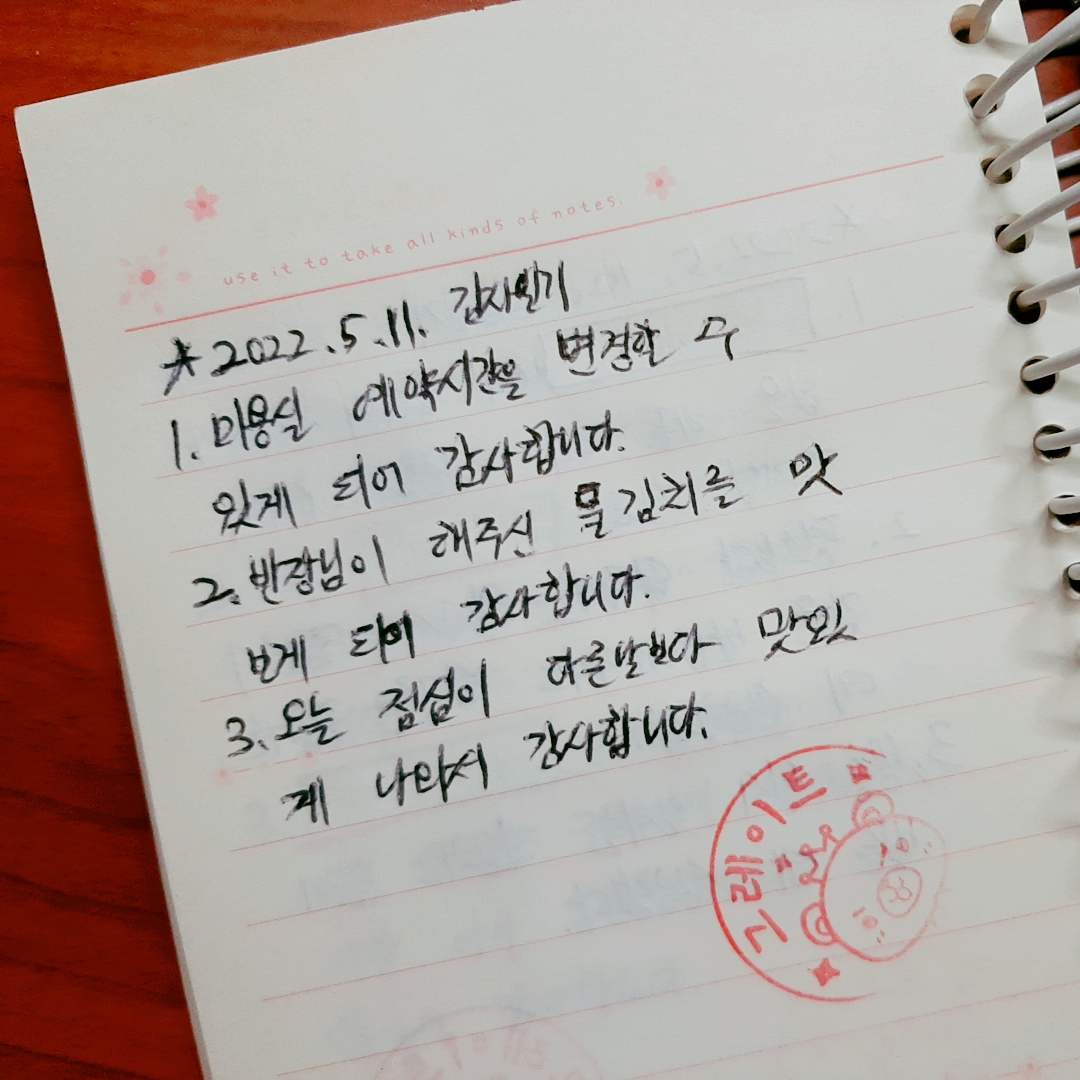 use it to take all kinds of notes.
★2022.5.11. 감사일기
1. 미용실 예약시간을 변경할 수
있게 되어 감사합니다.
2. 반장님이 해주신 물김치를 맛
보게 되어 감사합니다.
3. 오늘 점심이 다른날보다 맛있
게 나와서 감사합니다.
그레이트